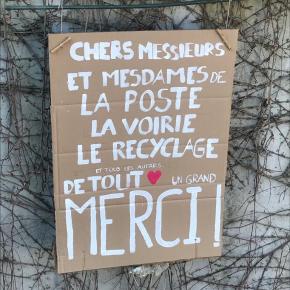 CHERS MESSIEURS
ET MESDAMES DE
LA POSTE
LA VOIRIE
LE RECYCLAGE
ET TOUS LES AUTRES...
DE TOUT ♥ UN GRAND
MERCI !